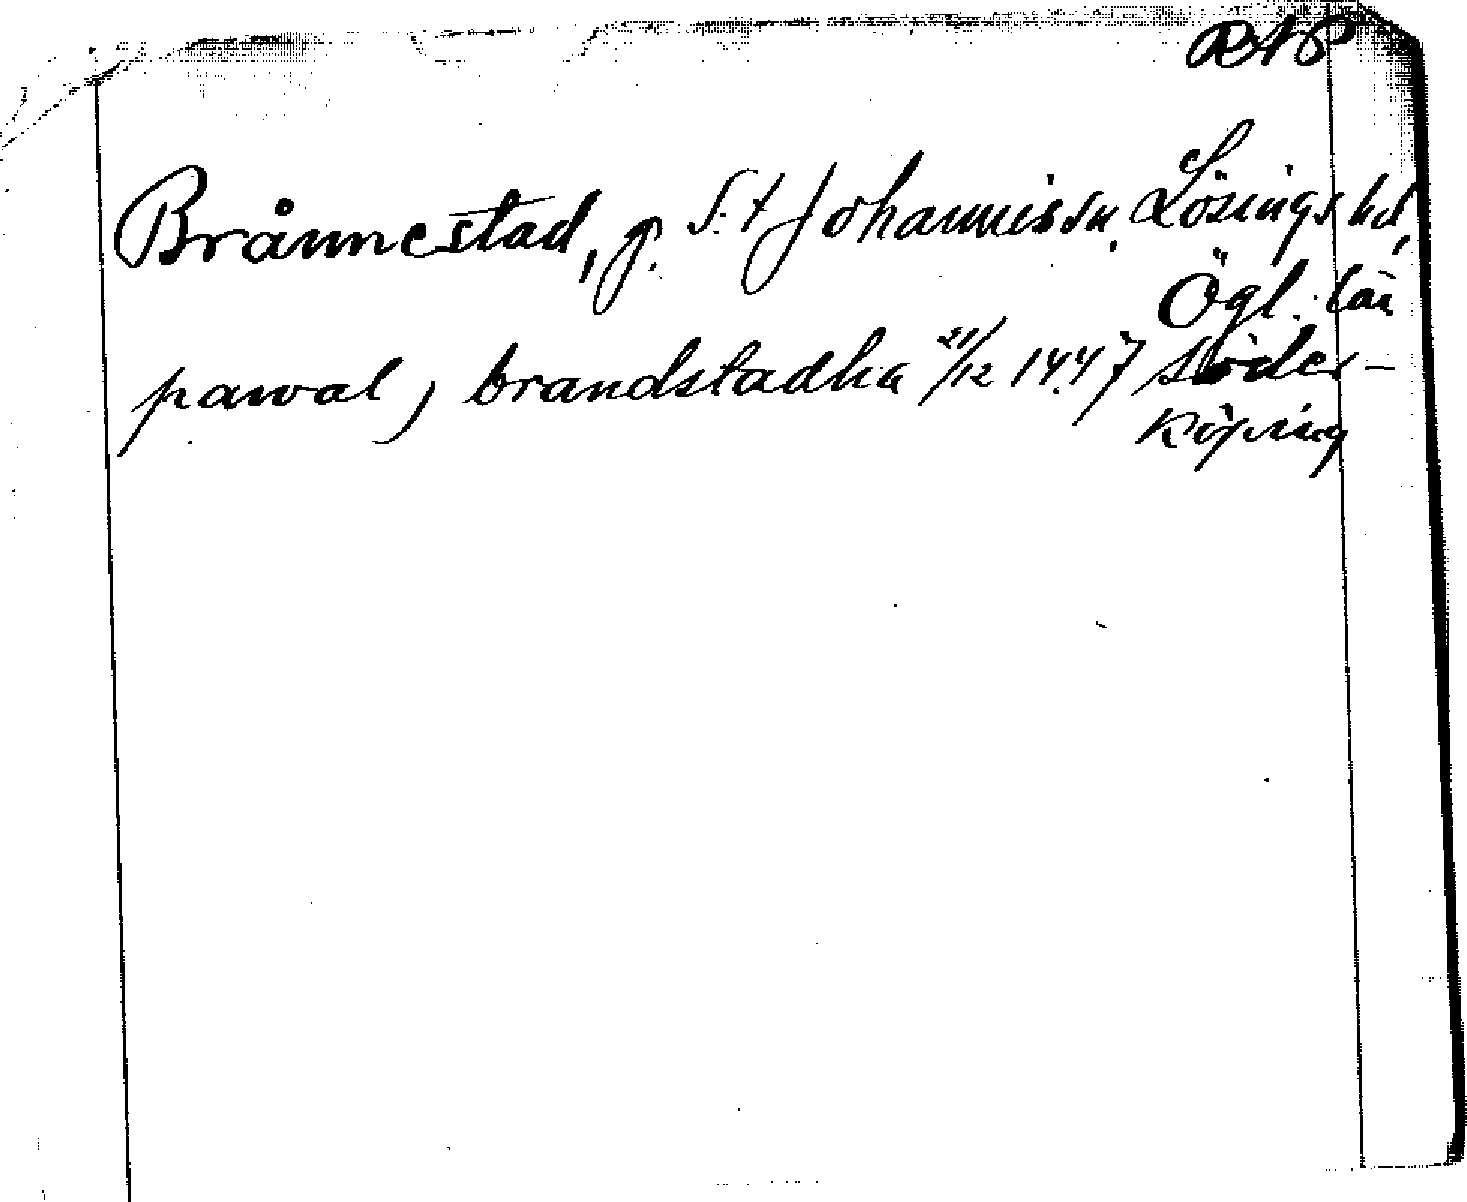 RAP
Brånnestad, g. S:t Johannis sn, Lösings hd,
Ögl. län
pawal, brandstadha 21/12 1447 Söder-
köping